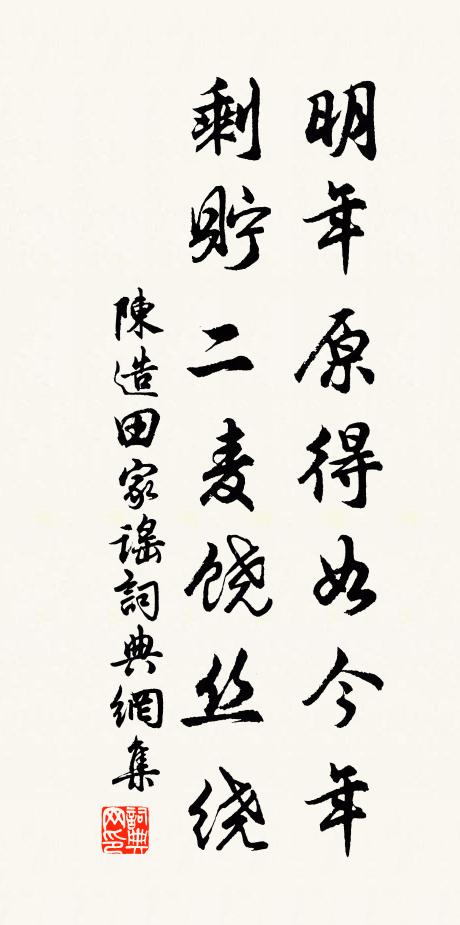 明年原得如今年
剩貯二麦饶丝绕
陳造田家谣詞典網集
詞典网印